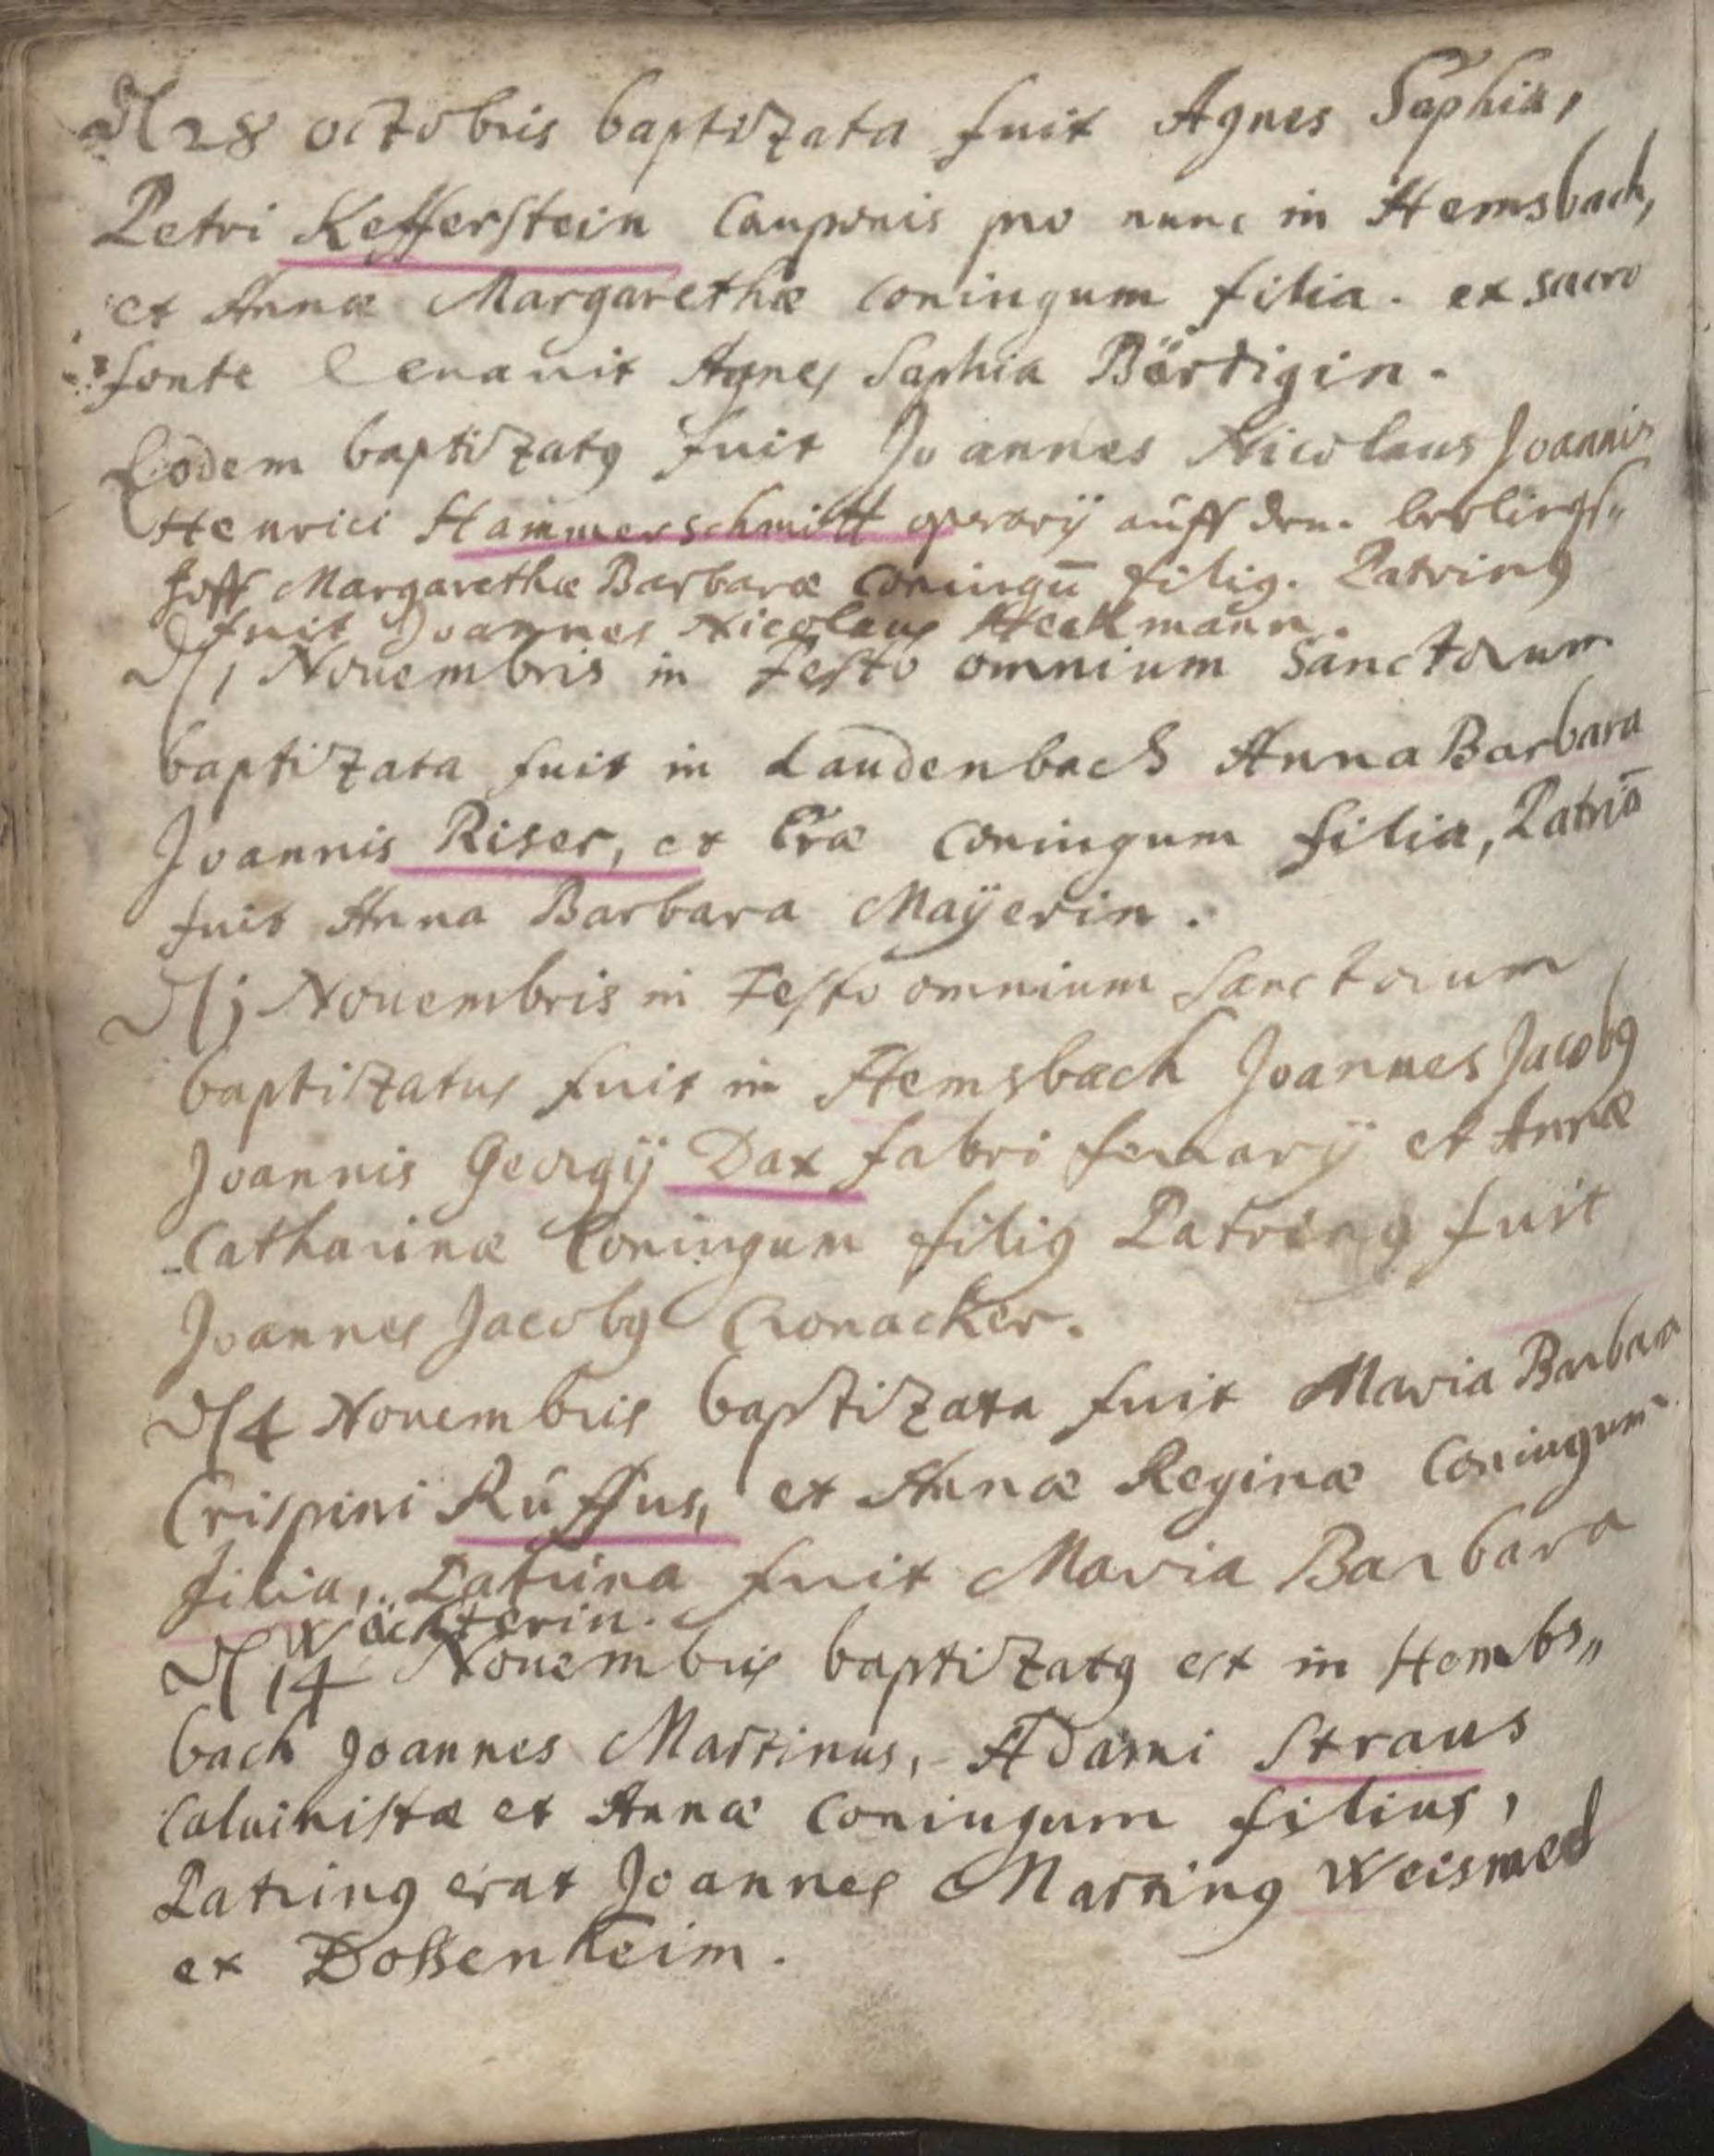 D 28 octobris baptizata fuit Agnes Sophia,
Petri Kefferstein Cauponis pro nunc in Hemsbach,
et Annæ Margarethæ Coniugum filia. ex sacro
fonte Leuauit Agnes Sophia Bördigin.
Eodem baptizatꝯ fuit Joannes Nicolaus Joannis
Henrici Hammerschmitt operarÿ auff den
hoff Margarethæ Barbaræ Coniugū filiꝯ. Patrinꝯ
fuit Joannes Nicolaus Heckmann.
D 1 Nouembris in Festo omnium Sanctorum
baptizata fuit in Laudenbach Anna Barbara
Joannis Riser, et Evæ Coniugum filia, Patrīa
fuit Anna Barbara Maÿerin.
D j Nouembris in Festo omnium Sanctorum
baptizatus fuit in Hemsbach Joannes Jacobꝯ
Joannis Georgÿ Dax fabri ferrarÿ et Annæ
Catharinæ Coniugum filiꝯ Patrinꝯ fuit
Joannes Jacobꝯ Cronacker.
D 4 Nouembris baptizata fuit Maria Barbara
Crispini Ruffus, et Annæ Reginæ Coniugum
filia, Patrina fuit Maria Barbara
Wächterin.
D 14 Nouembris baptizatꝯ est in Hembs„
bach Joannes Martinus, Adami Straus
Caluinistæ et Annæ Coniugum filius,
Patrinꝯ erat Joannes Martinꝯ Weismed
ex Doßenheim.